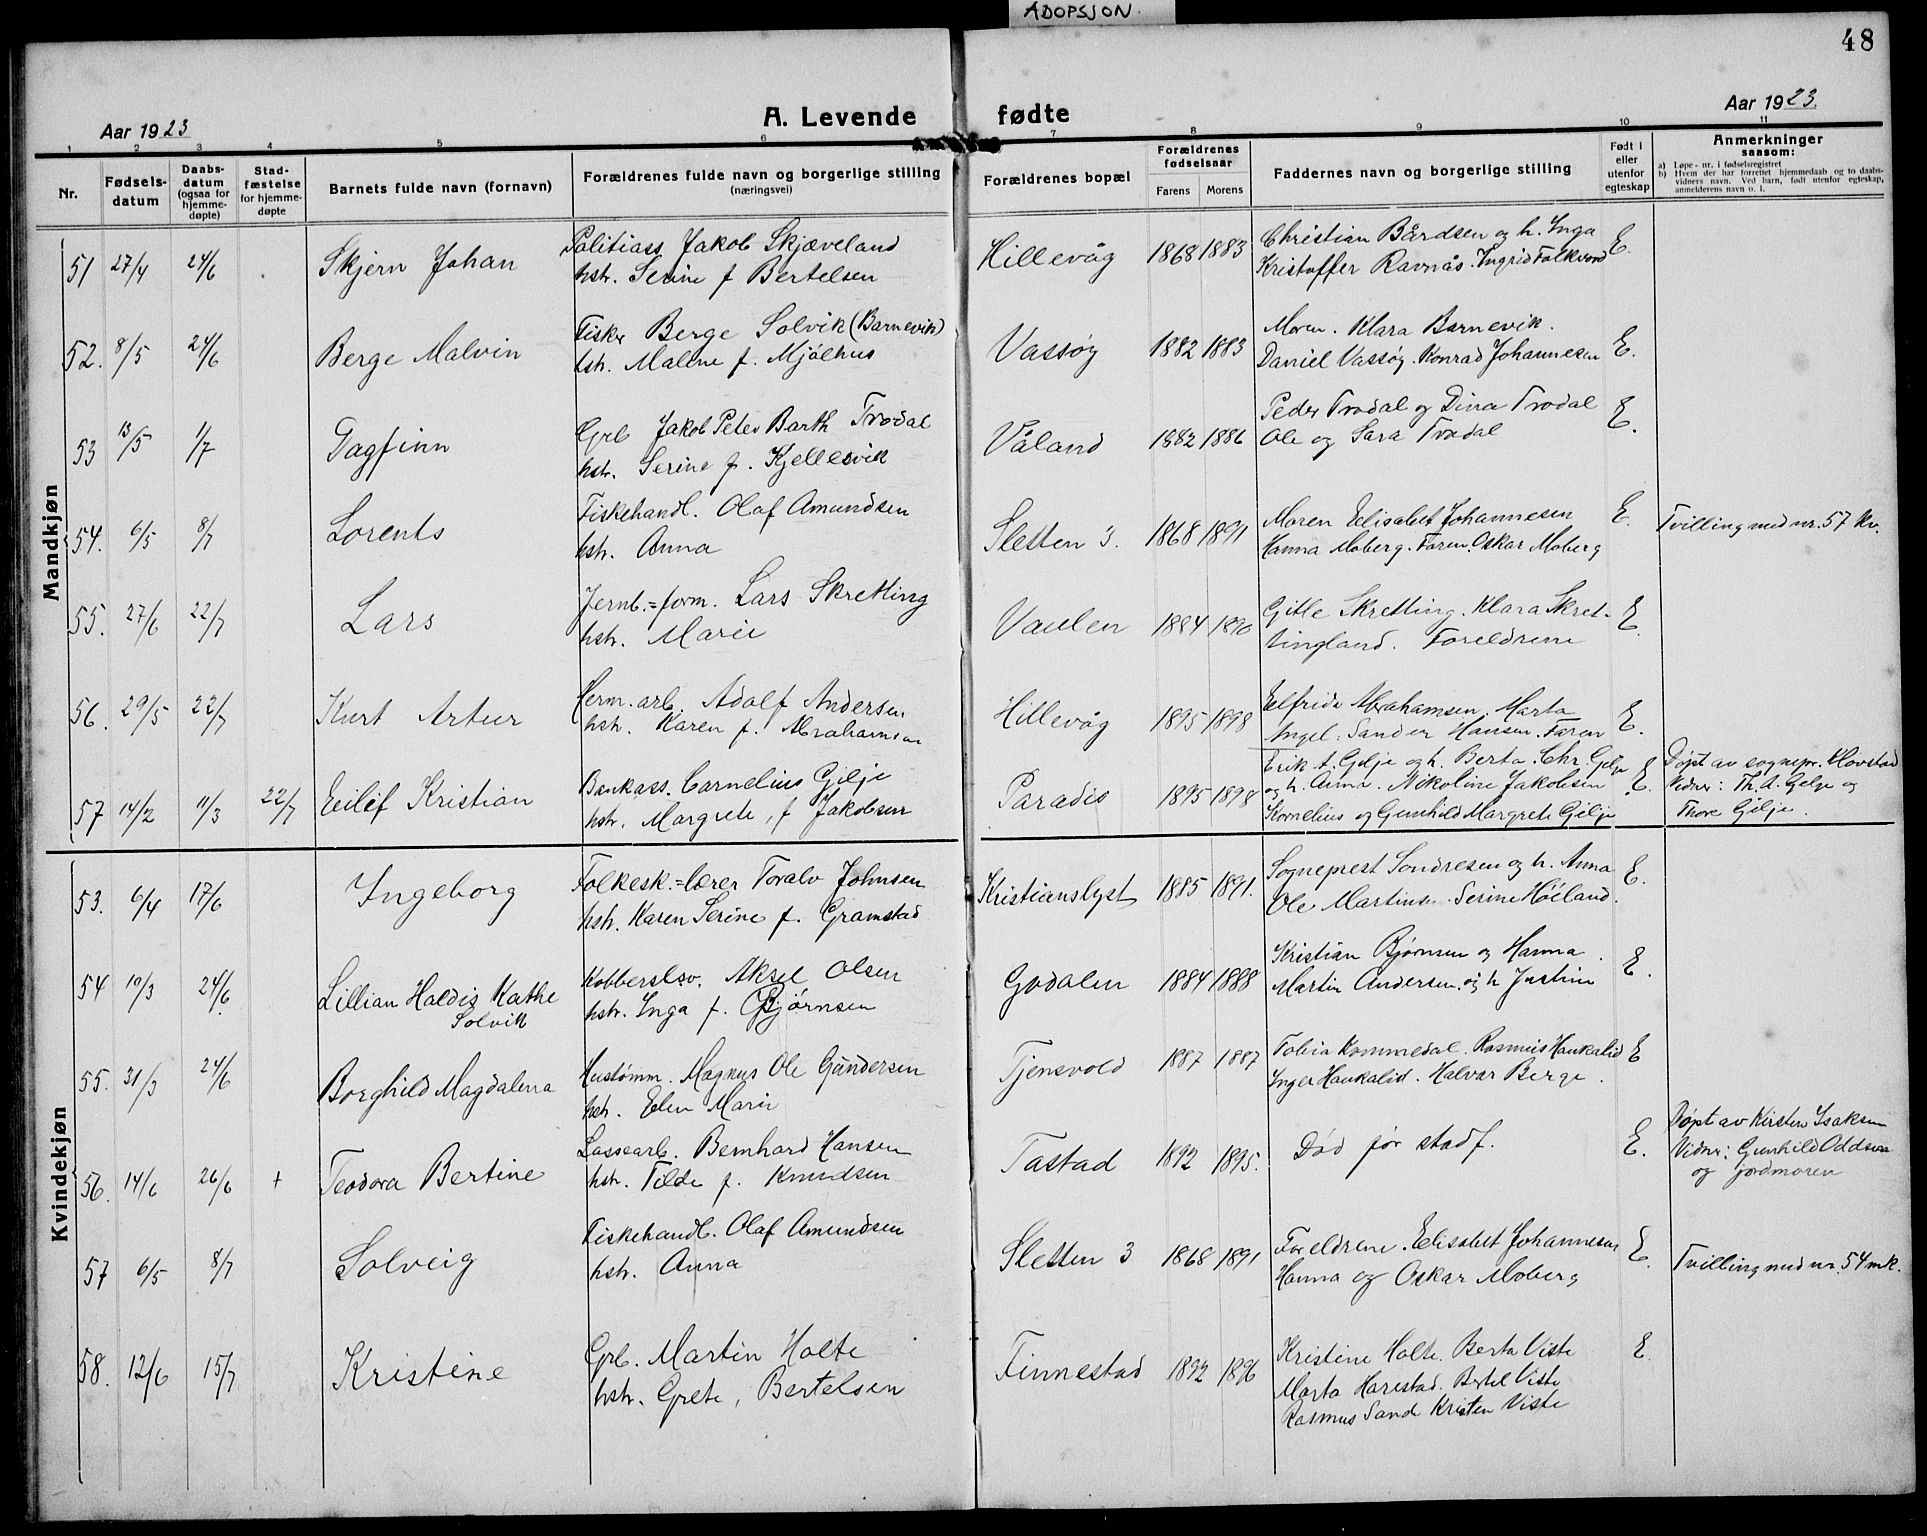 ADOPSJON.
48
Aar 1923
A. Levende fødte
Aar 1923.
1 2 3 4 5 6 7 8 9 10 11
Nr.
Fødsels-
datum
Daabs-
datum
(ogsaa for
hjemme-
døpte)
Stad-
fæstelse
for hjemme-
døpte
Barnets fulde navn (fornavn)
Forældrenes fulde navn og borgerlige stilling
(næringsvei)
Forældrenes bopæl
Forældrenes
fødselsaar
Farens Morens
Faddernes navn og borgerlige stilling
Født i
eller
utenfor
egteskap
Anmerkninger
saasom:
a) Løpe-nr. i fødselsregistret
b) Hvem der har forrettet hjemmedaab og to daabs-
vidners navn. Ved barn, født utenfor egteskap,
anmelderens navn o. l.
Mandkjøn
51 27/4 24/6 Skjern Johan
Politiass. Jakob Skjæveland
hstr. Serine f Bertelsen
Hillevåg 1868 1883
Christian Bårdsen og h. Inga
Kristoffer Ravnås. Ingrid Falkvord
E.
52. 8/5 24/6 Berge Malvin
Fisker Berge Solvik (Barnevik)
hstr. Malene f. Mjølhus
Vassøy 1882 1883
Moren. Klara Barnevik.
Daniel Vassøy. Konrad Johannesen
E.
53 13/5 1/7 Dagfinn
Grb Jakob Peter Barth Trodal
hstr. Serine f. Kjellesvik
Våland 1882 1886
Peder Trodal og Dina Trodal
Ole og Sara Trodal
E.
54. 6/5 8/7 Lorents
Fiskehandl. Olaf Amundsen
hstr. Anna
Sletten 3. 1868 1891
Moren Elisabet Johannesen
Hanna Moberg. Faren. Oskar Moberg
E.
Tvilling med nr. 57 kv.
55. 27/6 22/7 Lars
Jernb.=form. Lars Skretting
hstr. Marie
Vaulen 1884 1890
Gitle Skretting. Klara Skret-
tingland. Foreldrene
E.
56. 29/5 22/7 Kurt Artur
Herm. arb. Adolf Andersen
hstr. Karen f. Abrahamsen
Hillevåg 1895 1898
Elfride Abrahamsen. Marta
Angel. Sander Hansen. Faren
E.
57 14/2 11/3 22/7 Eilif Kristian
Bankass. Cornelius Gilje
hstr. Margrete, f Jakobsen
Paradis 1895 1898
Erik A. Gilje og h. Berta. Chr. Gilje
og h. Anna. Nikoline Jakobsen
Kornelius og Gunhild Margrete Gilje
E.
Døpt av sognepr. Hovstad
Vidner: Th. A. Gilje og
Thore Gilje.
Kvindekjøn
53. 6/4 17/6 Ingeborg
Folkesk.=lærer Toralv Johnsen
hstr. Karen Serine f. Gramstad
Kristianslyst 1885 1891.
Sogneprest Sondresen og h. Anna
Ole Martinsen. Serine Høiland.
E.
54 10/3 24/6 Lillian Haldis Kathe
Solvik
Kobberslav. Aksel Olsen
hstr. Inga f. Bjørnsen
Godalen 1884 1888
Kristian Bjørnsen og Hanna.
Martin Andersen. og h Justine
E.
55. 31/3 24/6 Borghild Magdalena
Hustømm. Magnus Ole Gundersen
hstr. Elen Marie
Tjensvold 1887 1887
Tobia Kommedal. Rasmus Haukalid
Inger Haukalid. Halvar Berge.
E
56. 14/6 26/6 + Teodora Bertine
Lossearb. Bernhard Hansen
hstr. Tilde f. Knudsen
Tastad 1892 1895.
Død før stadf.
E.
Døpt av Kirsten Isaksen
Vidner: Gunhild Oddsen
og jordmoren
57 6/5 8/7 Solveig
Fiskehandl. Olaf Amundsen
hstr. Anna
Sletten 3 1868 1891
Foreldrene. Elisabet Johannesen
Hanna og Oskar Moberg
E.
Tvilling med nr. 54 mk.
58. 12/6 15/7 Kristine
Grb. Martin Holte
hstr. Grete, Bertelsen
Finnestad 1892 1896
Kristine Holte. Berta Viste
Marta Harestad. Bertel Viste
Rasmus Sande Kristen Viste
E.